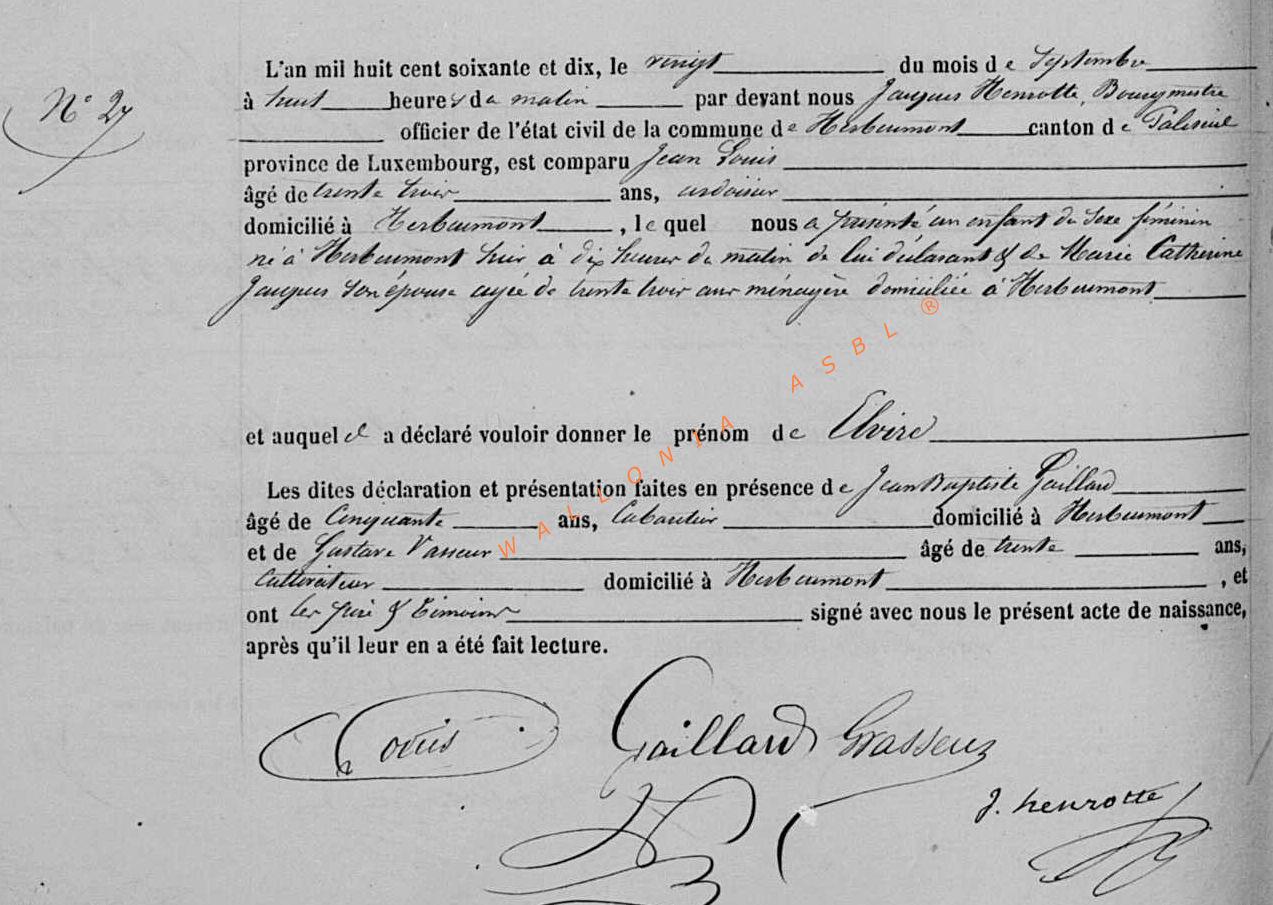 L'an mil huit cent soixante et dix, le vingt du mois de Septembre
N° 27
à huit heures du matin par devant nous Jacques Henrotte, Bourgmestre
officier de l'état civil de la commune de Herbeumont canton de Paliseul
province de Luxembourg, est comparu Jean Louis
âgé de trente trois ans, ardoisier
domicilié à Herbeumont, le quel nous a présenté un enfant du sexe féminin
né à Herbeumont hier à dix heures du matin de lui déclarant & de Marie Catherine
Jacques son épouse agée de trente trois ans ménagère domiciliée à Herbeumont
WALLONIA ASBL ®
et auquel il a déclaré vouloir donner le prénom de Elvire
Les dites déclaration et présentation faites en présence de Jean Baptiste Gaillard
âgé de Cinquante ans, Cabaretier domicilié à Herbeumont
et de Gustave Vasseur âgé de trente ans,
Cultivateur domicilié à Herbeumont, et
ont les père & témoins signé avec nous le présent acte de naissance,
après qu'il leur en a été fait lecture.
Louis Gaillard G Vasseur
J. henrotte